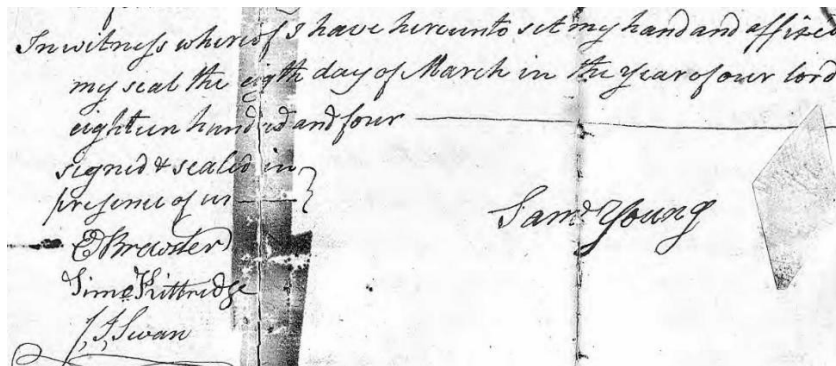 In witness whereof I have hereunto set my hand and affixed
my seal the eigth day of March in the year of our lord
eighteen hundred and four
signed & sealed in
presence of us
E Brewster
Sim.e Kittridge
J, J, Swan
Sam.l Young